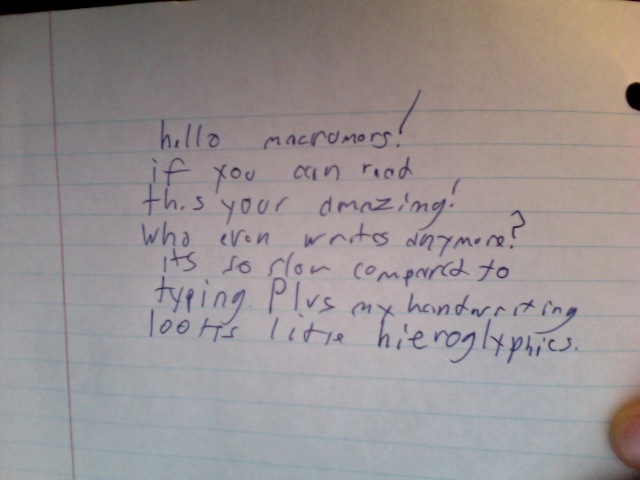 hello macrumors!
if you can read
this your amazing!
Who even writes anymore?
its so slow compared to
typing. Plus my handwriting
looks like hieroglyphics.